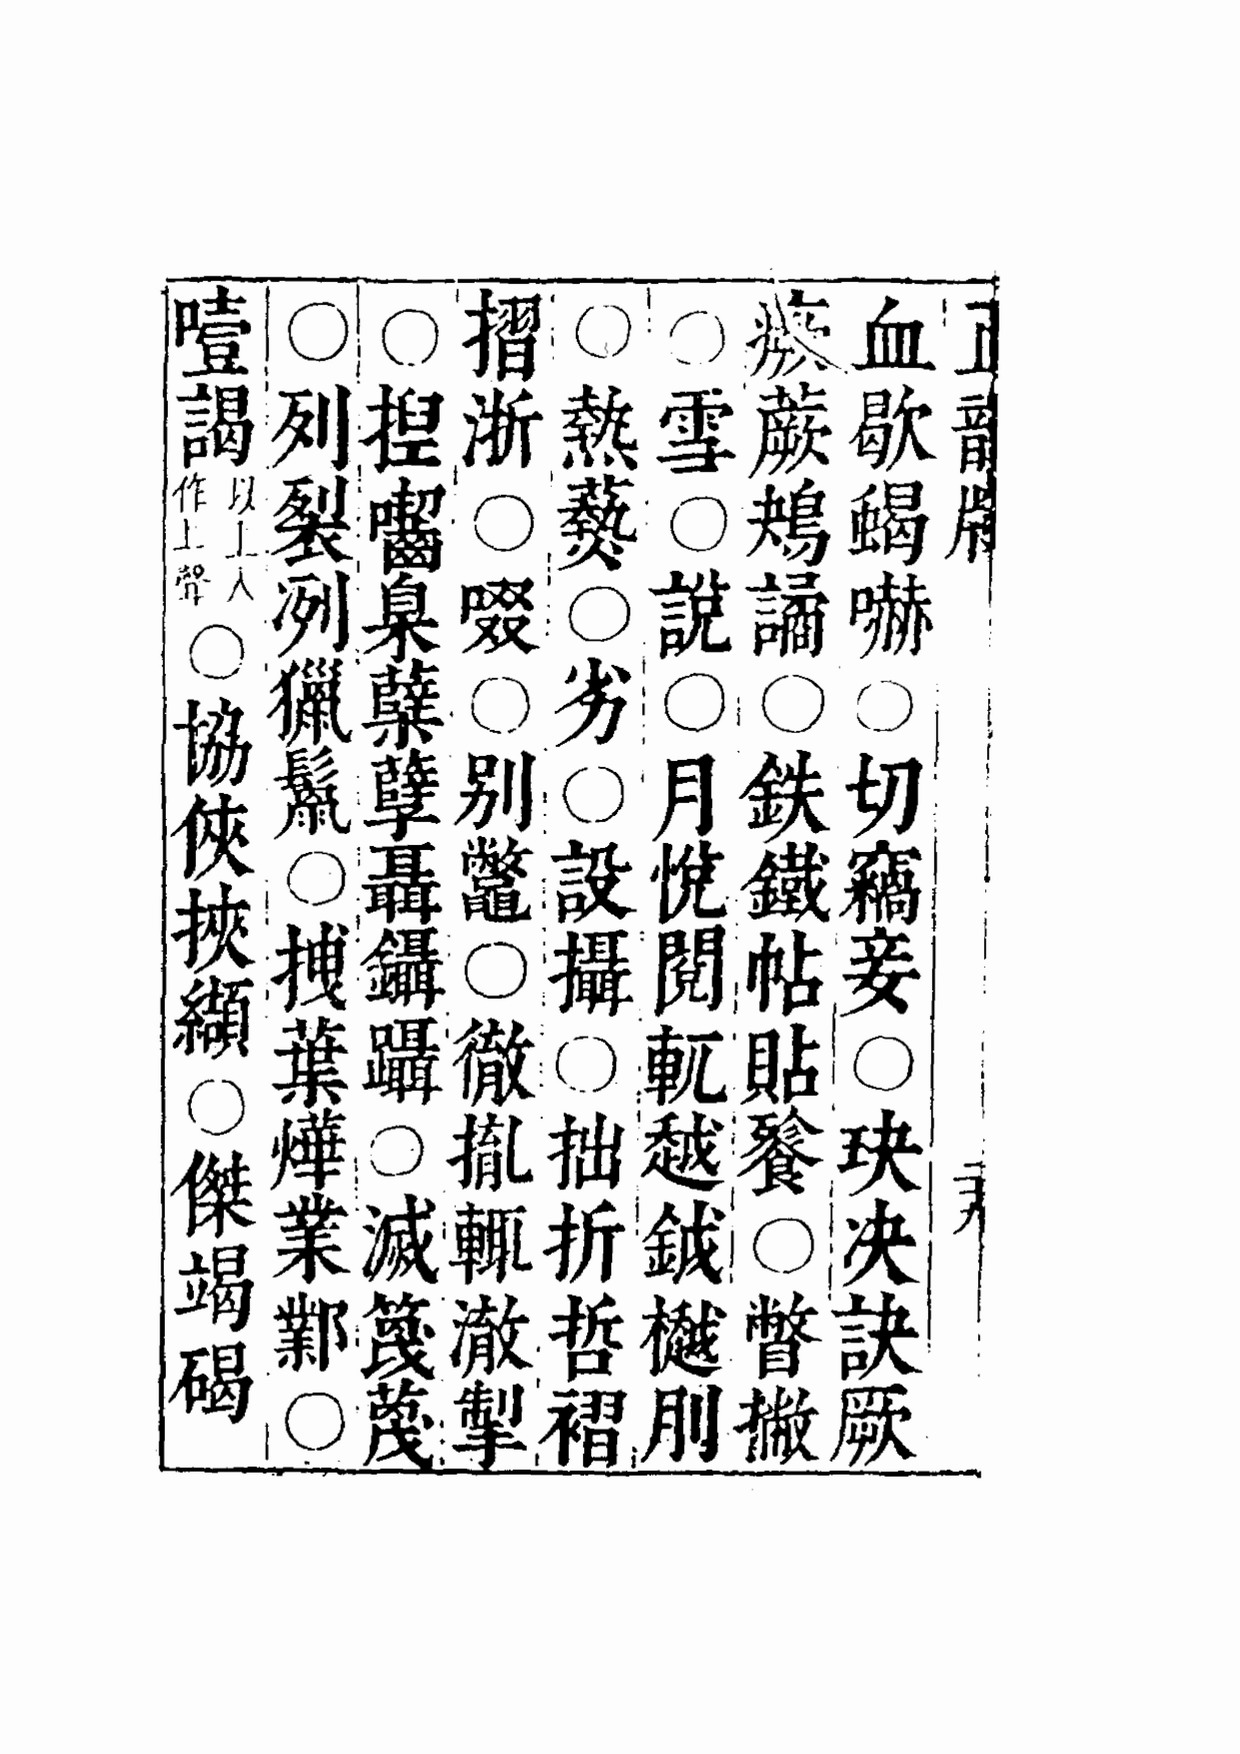 血歇蝎嚇○切竊妾○玦决訣厥
瘚蕨鴂譎○鉄鐵帖貼餮○瞥撇
○雪○說○月悅閱軏越鉞樾刖
○熱爇○劣○設攝○拙折哲褶
摺浙○啜○别鼈○徹撤輒澈掣
○揑囓臬櫱孽聶鑷躡○滅篾蔑
○列裂冽獵鬣○拽葉燁業鄴○
噎謁以上入作上聲○協俠挾纈○傑竭碣